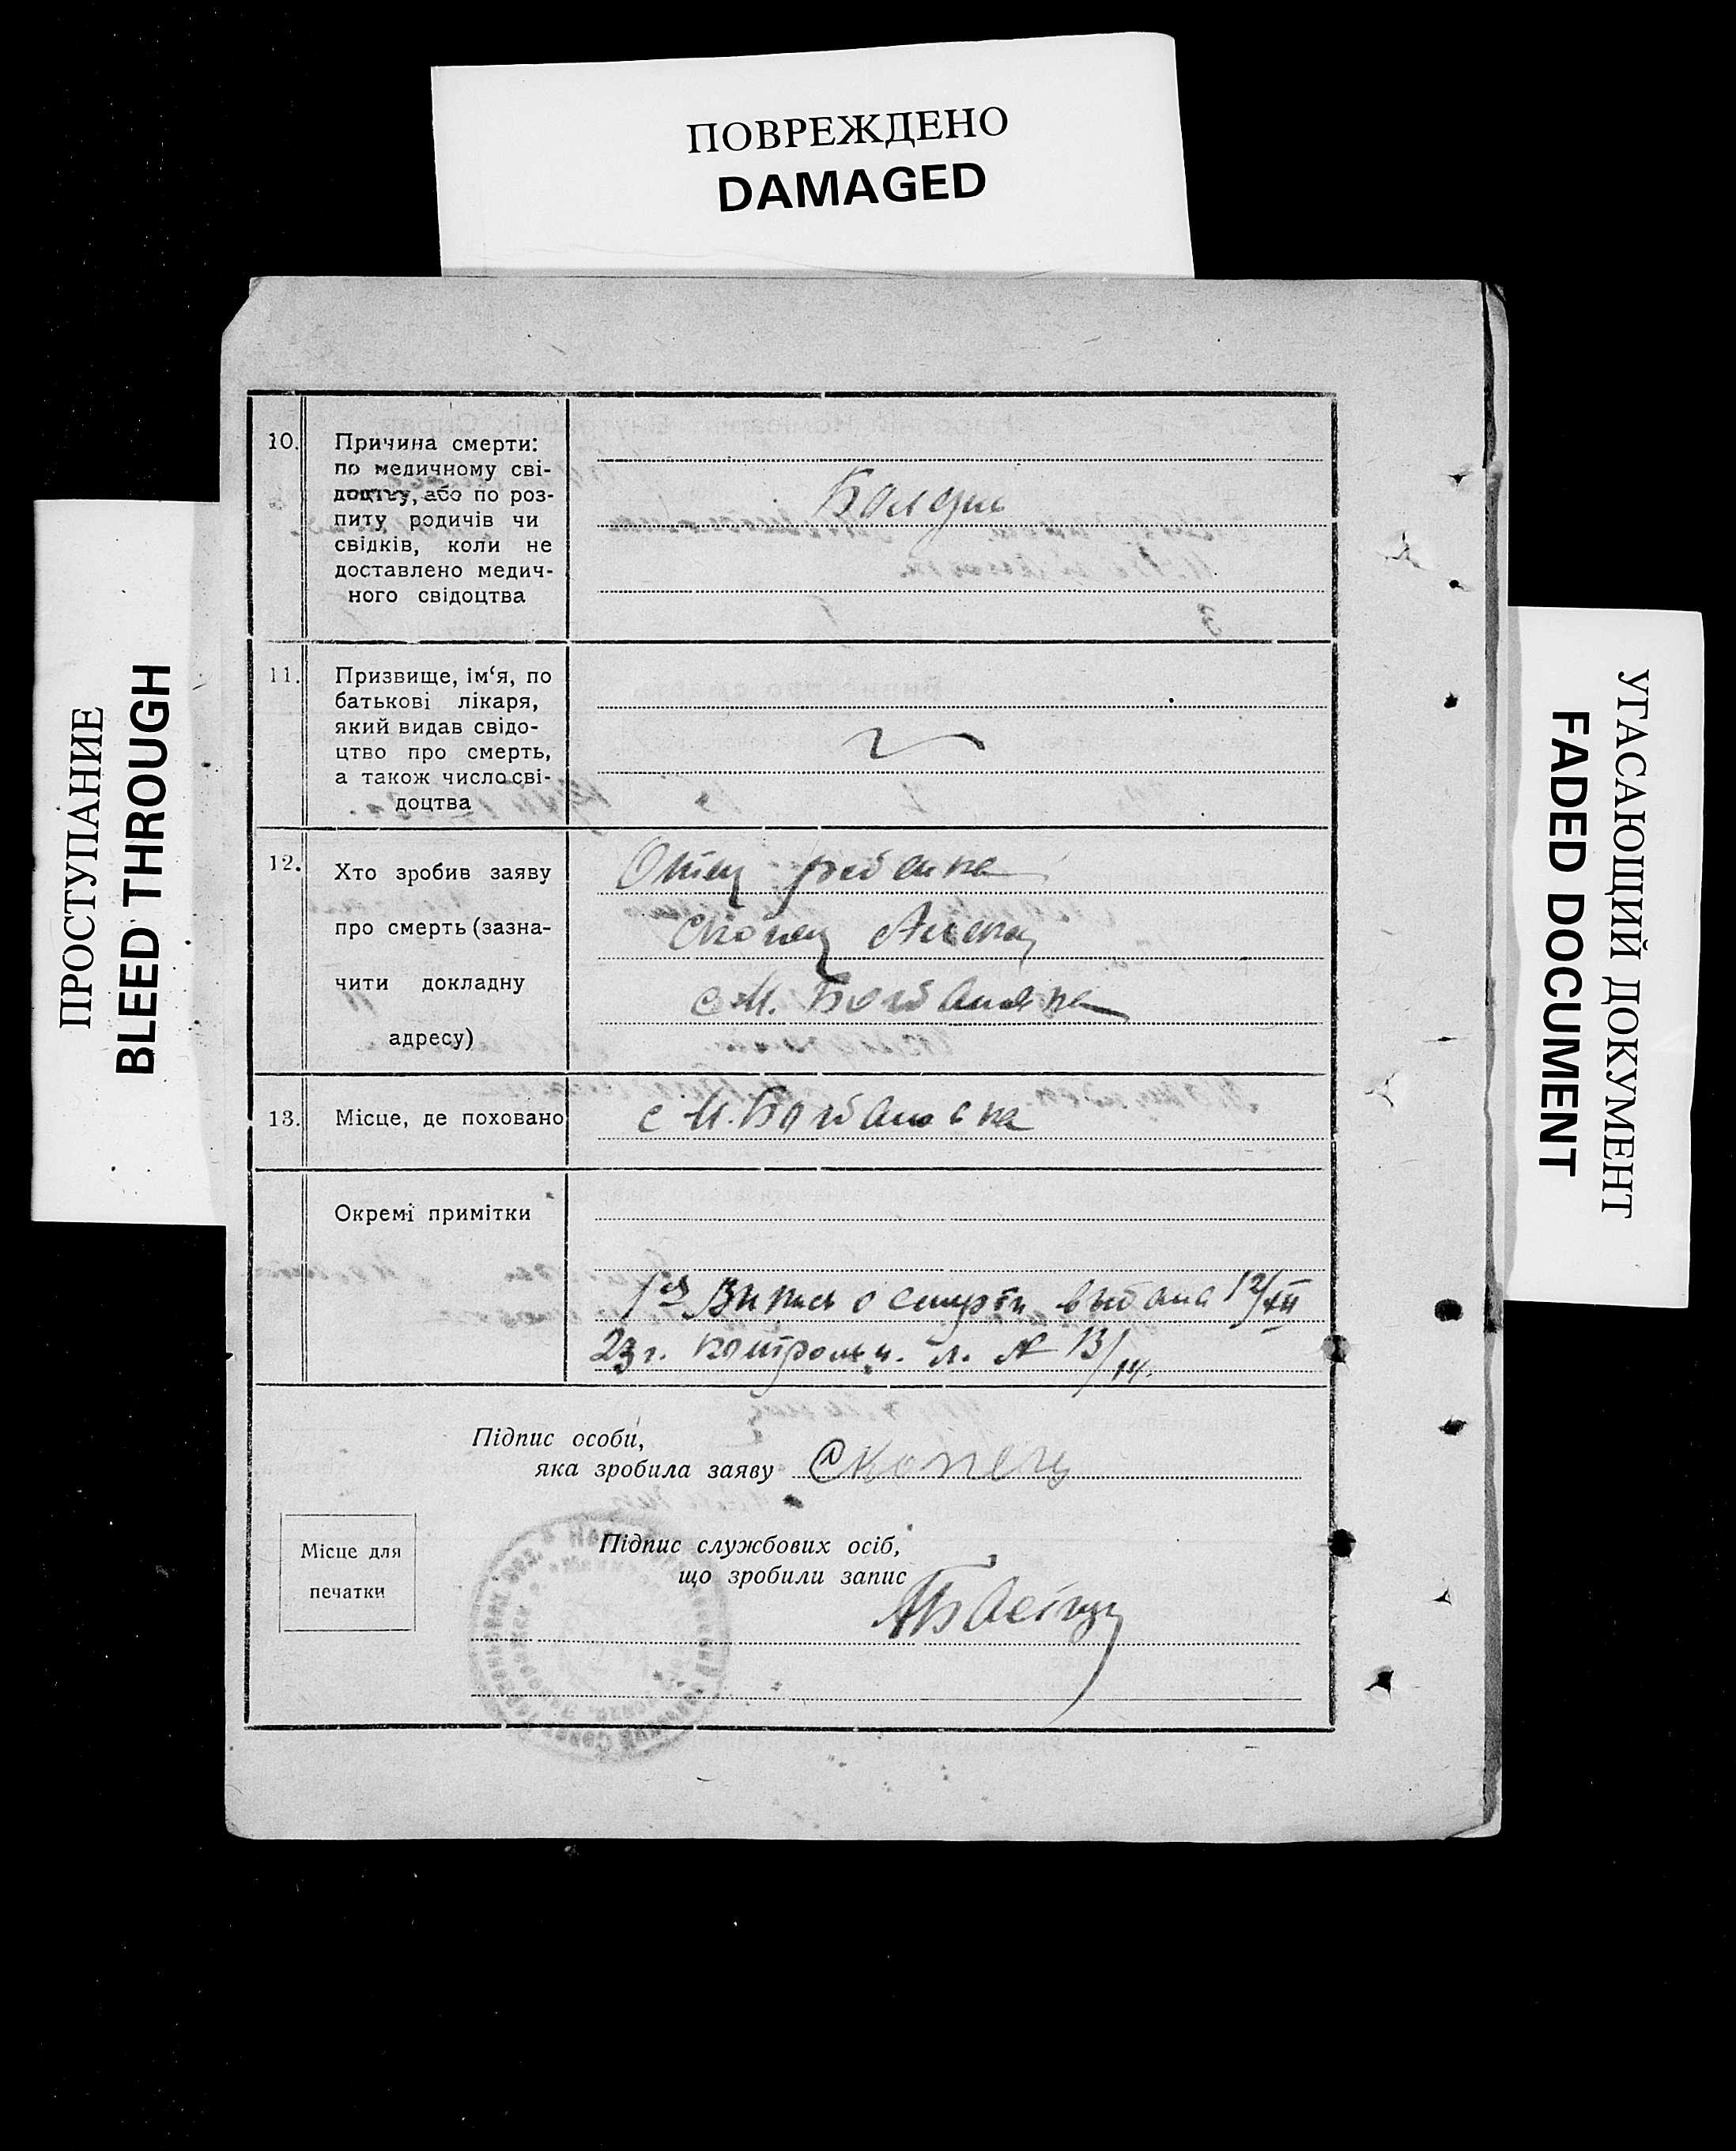 ПОВРЕЖДЕНО
DAMAGED
ПРОСТУПАНИЕ
BLEED THROUGH
УГАСАЮЩИЙ ДОКУМЕНТ
FADED DOCUMENT
10.
Причина смерти:
по медичному сві-
доцтву, або по роз-
питу родичів чи
свідків, коли не
доставлено медич-
ного свідоцтва
11.
Призвище, ім‘я, по
батькові лікаря,
який видав свідо-
цтво про смерть,
а також число сві-
доцтва
12.
Хто зробив заяву
про смерть (зазна-
чити докладну
адресу)
Отец ребенка
Скопец
с М.
13.
Місце, де поховано
с М.
Окремі примітки
1ая о смерти выдана 12/XII
23 г. л. № 13/14.
Підпис особи,
яка зробила заяву Скопец
Місце для
печатки
Підпис службових осіб,
що зробили запис